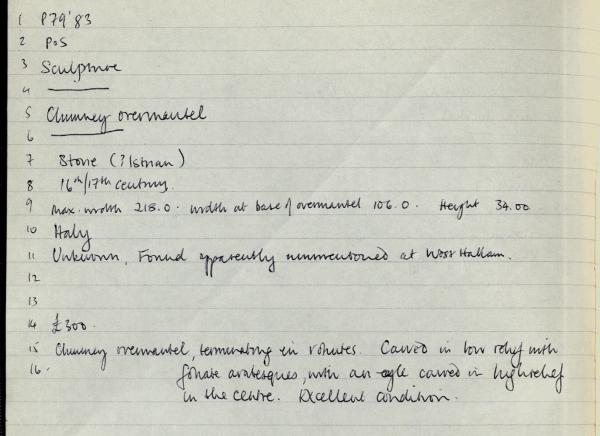 1 P79'83
2 PoS
3 Sculpture
4
5 Chimney overmantel
6
7 Stone (? Istrian)
8 16th/17th century.
9 Max. width 218.0. width at base of overmantel 106.0. Height 34.00
10 Italy
11 Unknown, Found apparently unmentioned at West Hallam.
12
13
14 £300.
15 Chimney overmantel, terminating in volutes. Carved in low relief with
16. foliate arabesques, with an eagle carved in high relief
in the centre. Excellent condition.